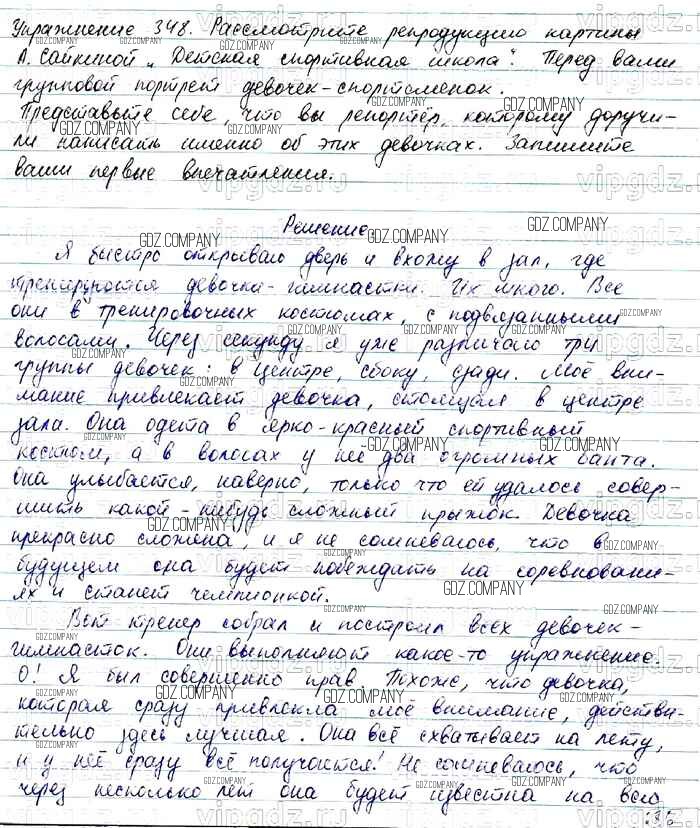 Упражнение 348. Рассмотрите репродукцию картины
А. Сайкиной „Детская спортивная школа". Перед вами
групповой портрет девочек-спортсменок.
Представьте себе, что вы репортёр, которому доручи-
ли написать именно об этих девочках. Запишите
ваши первые впечатления.
Решение.
Я быстро открываю дверь и вхожу в зал, где
тренируются девочки-гимнастки. Их много. Все
они в тренировочных костюмах, с подвязанными
волосами. Через секунду я уже различаю три
группы девочек: в центре, сбоку, сзади. Моё вни-
мание привлекает девочка, стоящая в центре
зала. Она одета в ярко-красный спортивный
костюм, а в волосах у неё два огромных банта.
Она улыбается, наверно, только что ей удалось совер-
шить какой-нибудь сложный прыжок. Девочка
прекрасно сложена, и я не сомневаюсь, что в
будущем она будет побеждать на соревновани-
ях и станет чемпионкой.
Вот тренер собрал и построил всех девочек-
гимнасток. Они выполняют какое-то упражнение.
О! Я был совершенно прав Похоже, что девочка,
которая сразу привлекла моё внимание, действи-
тельно здесь лучшая. Она всё схватывает на лету,
и у неё сразу всё получается! Не сомневаюсь, что
через несколько лет она будет известна на всю
GDZ.COMPANY
vipgdz.ru